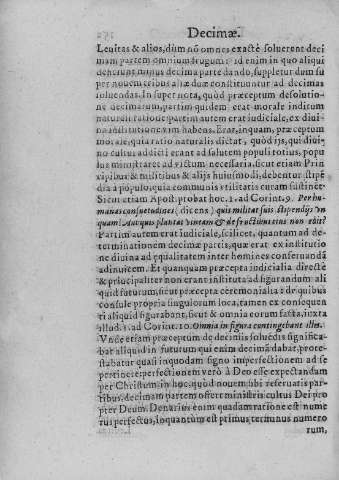 Decimæ.
Leuitas & alios, dum nō omnes exactè soluerent deci
mam partem omnium frugum: ad enim in quo aliqui
defecerunt minus decima parte dando, suppletur dum su
per nouem tribus aliæ duæ constituuntur ad decimas
soluendas. In super nota, quòd præceptum de solutio-
ne decimarum, partim quidem erat morale inditum
naturali ratione: partim autem erat iudiciale, ex diui-
na institutione vim habens. Erat, inquam, præceptum
morale, quia ratio naturalis dictat, quòd ijs, qui diui-
no cultui addicti erant ad salutem populi totius, popu
lus ministraret ad victum necessaria, sicut etiam Prin
cipibus & militibus & alijs huiusmodi, debentur stipē
dia à populo, quia communis vtilitatis curam sustinet.
Sicut etiam Apost. probat hoc 1. ad Corint. 9. Per hu
manas consuetudines (dicens) quis militat suis stipendijs vn
quam? Aut quis plantat vineam & de fructu eius non edit?
Partim autem erat iudiciale, scilicet, quantum ad de-
terminationem decimæ partis, quæ erat ex institutio
ne diuina ad æqualitatem inter homines conseruandā
adinuicem. Et quanquam præcepta iudicialia directè
& principaliter non erant instituta ad figurandum ali
quid futurum, sicut præcepta ceremonialia: de quibus
consule propria singulorum loca, tamen ex consequen
ti aliquid figurabant, sicut & omnia eorum facta, iuxta
illud. 1. ad Corint. 10. Omnia in figura contingebant illis.
Vnce etiam præceptum de decimis soluēdis significa-
bat aliquid in futurum: qui enim decimā dabat, prote-
stabatur quasi in quodam signo imperfectionem ad se
pertinere: perfectionem verò à Deo esse expectandam
per Christum in hoc, quòd nouem sibi reseruatis par-
tibus, decimam partem offert ministris cultus Dei pro
pter Deum. Denarius enim quadam ratione est nume
rus perfectus, in quantum est primus terminus numero
rum,